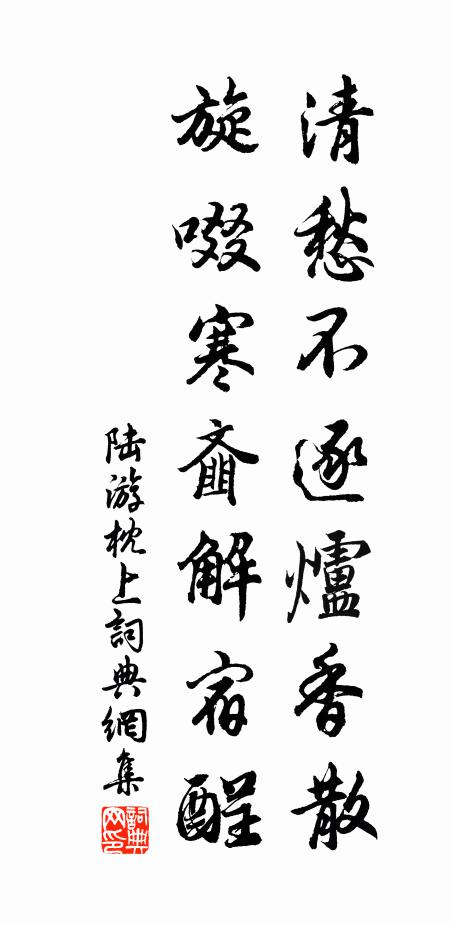 清愁不逐爐香散
旋啜寒齑解宿酲
陸游枕上詞典網集
詞典网印